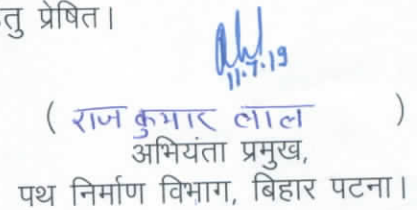 तु प्रेषित।
11.7.19
( राज कुमार लाल )
अभियंता प्रमुख,
पथ निर्माण विभाग, बिहार पटना।